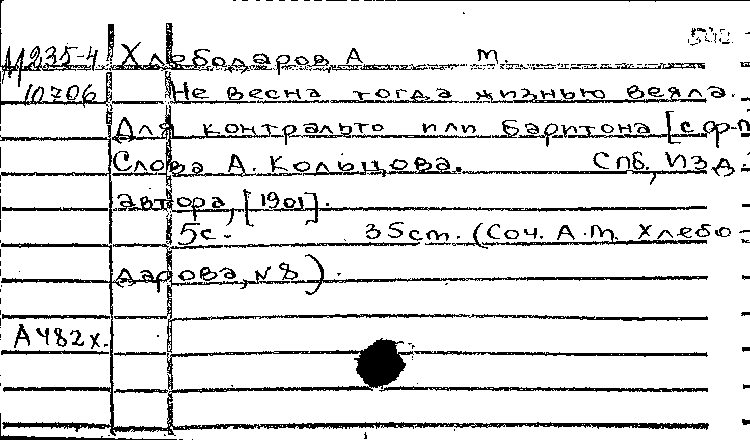 М235-4 Хлебодаров, А М.
10706 Не весна тогда жизнью веяла.
Для контральто или баритона [с ф-п
Слова А. Кольцова. Спб, Изд.
автора, [1901].
5с. 35 cm. (Соч. А.М. Хлебо-
дарова, № 8).
А 482х.